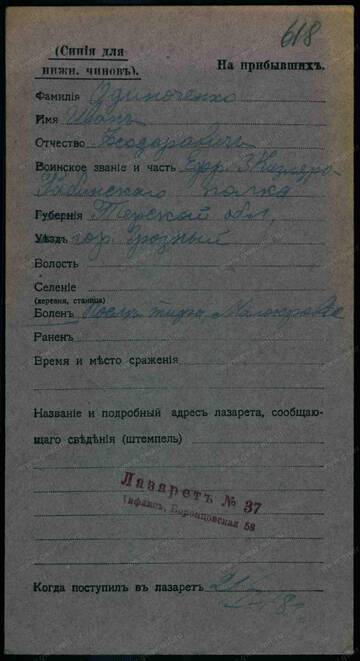 618
(Синія для
нижн. чиновъ).
На прибывшихъ.
Фамилія Одиноченко
Имя Иванъ
Отчество Феодоровичъ
Воинское званіе и часть Ефр. 3 Кизляро-
Гребинскаго полка
Губернія Терской обл.
Уѣздъ гор. Грозный
Волость
Селеніе
(деревня, станица)
Боленъ Послѣ тифа Малокровіе
Раненъ
Время и мѣсто сраженія
Названіе и подробный адресъ лазарета, сообщаю-
щаго свѣдѣнія (штемпель)
Лазаретъ № 37
Тифлисъ, Воронцовская 58
Когда поступилъ въ лазаретъ